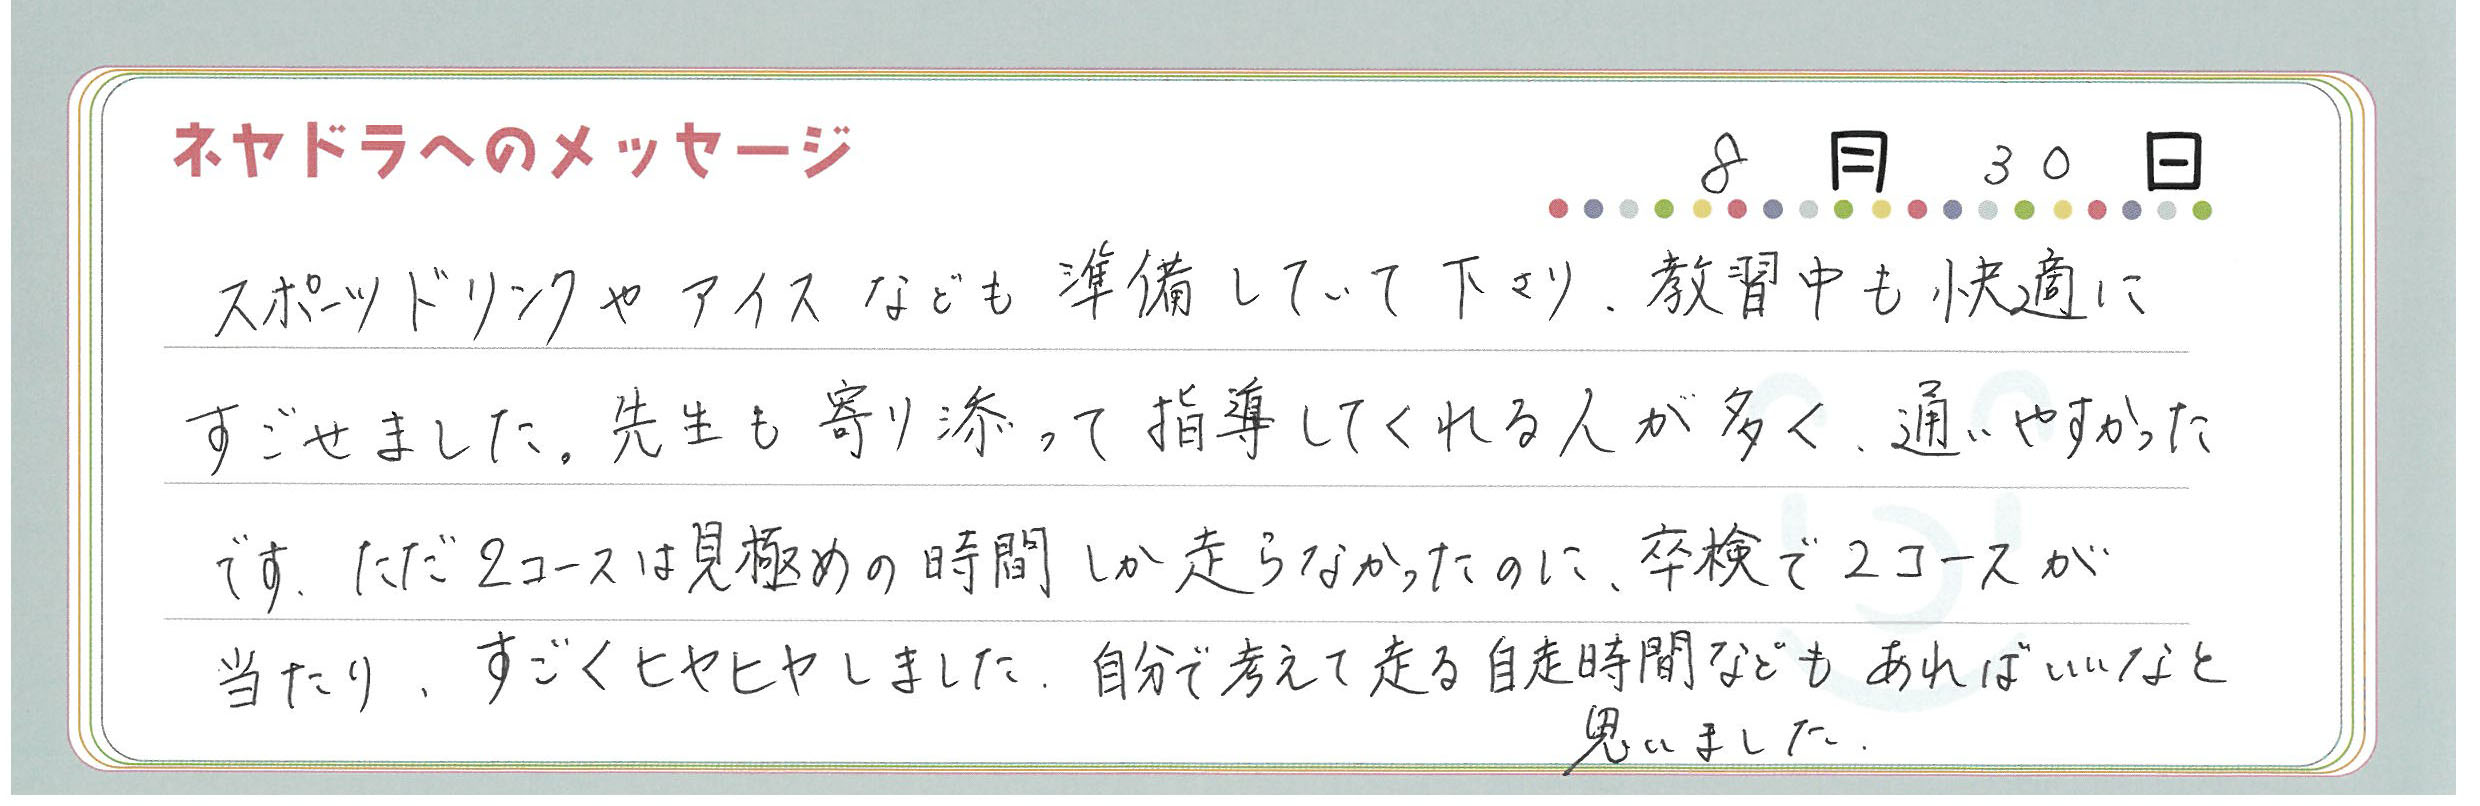 ネヤドラへのメッセージ
8月30日
スポーツドリンクやアイスなども準備していて下さり、教習中も快適に
すごせました。先生も寄り添って指導してくれる人が多く、通いやすかった
です。ただ2コースは見極めの時間しか走らなかったのに、卒検で2コースが
当たり、すごくヒヤヒヤしました。自分で考えて走る自走時間などもあればいいなと
思いました。